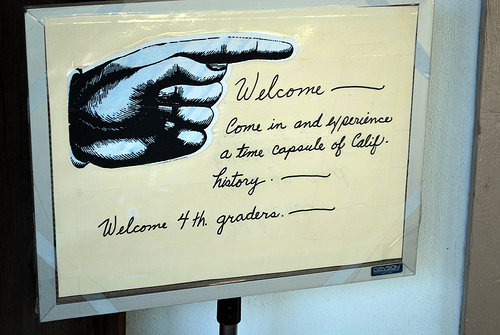 Welcome —
Come in and experience
a time capsule of Calif.
history. —
Welcome 4th. graders. —